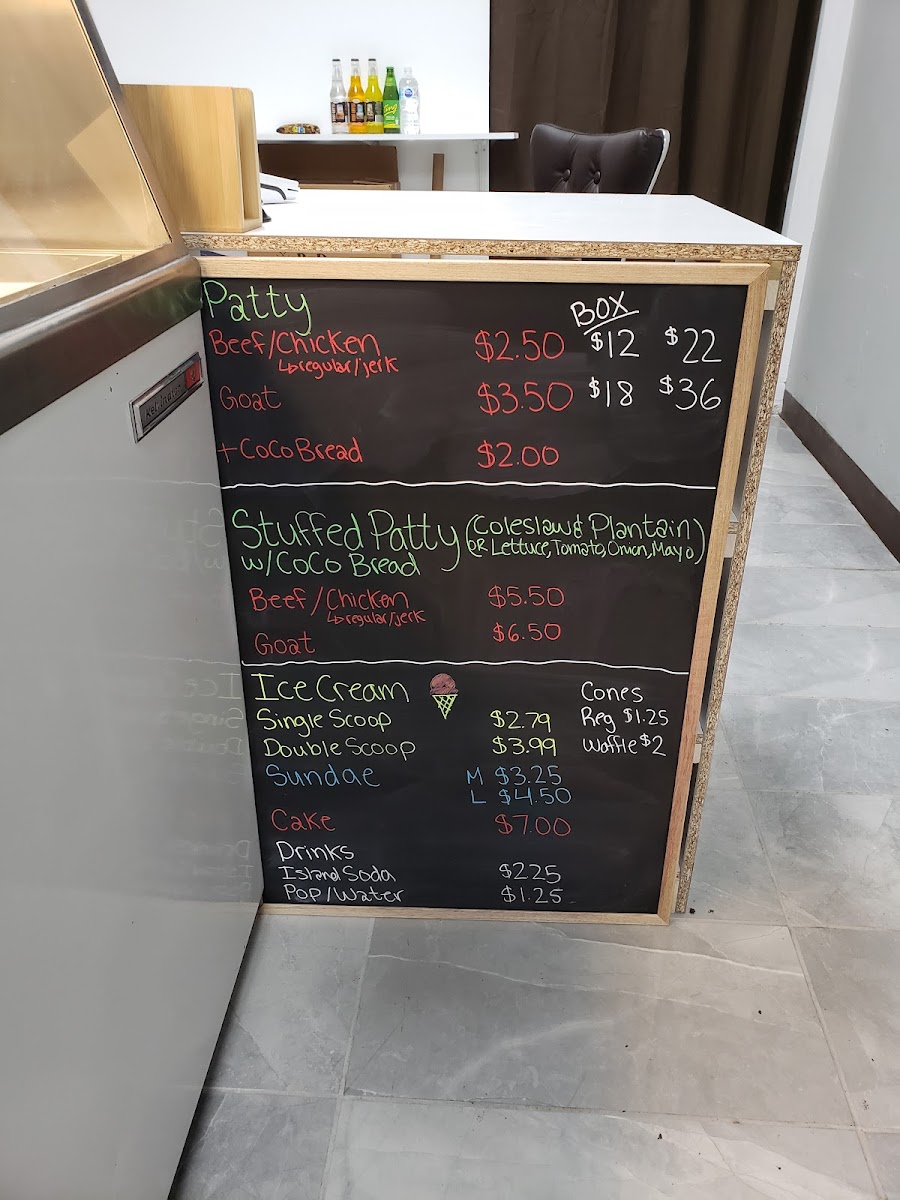 Patty BOX
Beef/Chicken $2.50 $12 $22
↳regular/jerk
Goat $3.50 $18 $36
+CoCo Bread $2.00
Stuffed Patty (Coleslaw & Plantain)
OR Lettuce, Tomato, Onion, Mayo)
w/CoCo Bread
Beef/Chicken $5.50
↳regular/jerk
Goat $6.50
Ice Cream Cones
Single Scoop $2.79 Reg $1.25
Double Scoop $3.99 Waffle $2
Sundae M $3.25
L $4.50
Cake $7.00
Drinks
Island Soda $2.25
Pop/Water $1.25
Ting